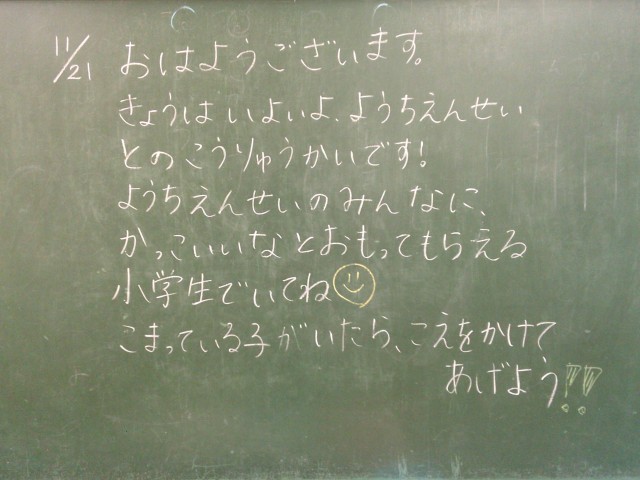 11/21 おはようございます。
きょうはいよいよ、ようちえんせい
とのこうりゅうかいです!
ようちえんせいのみんなに、
かっこいいなとおもってもらえる
小学生でいてね
こまっている子がいたら、こえをかけて
あげよう!!